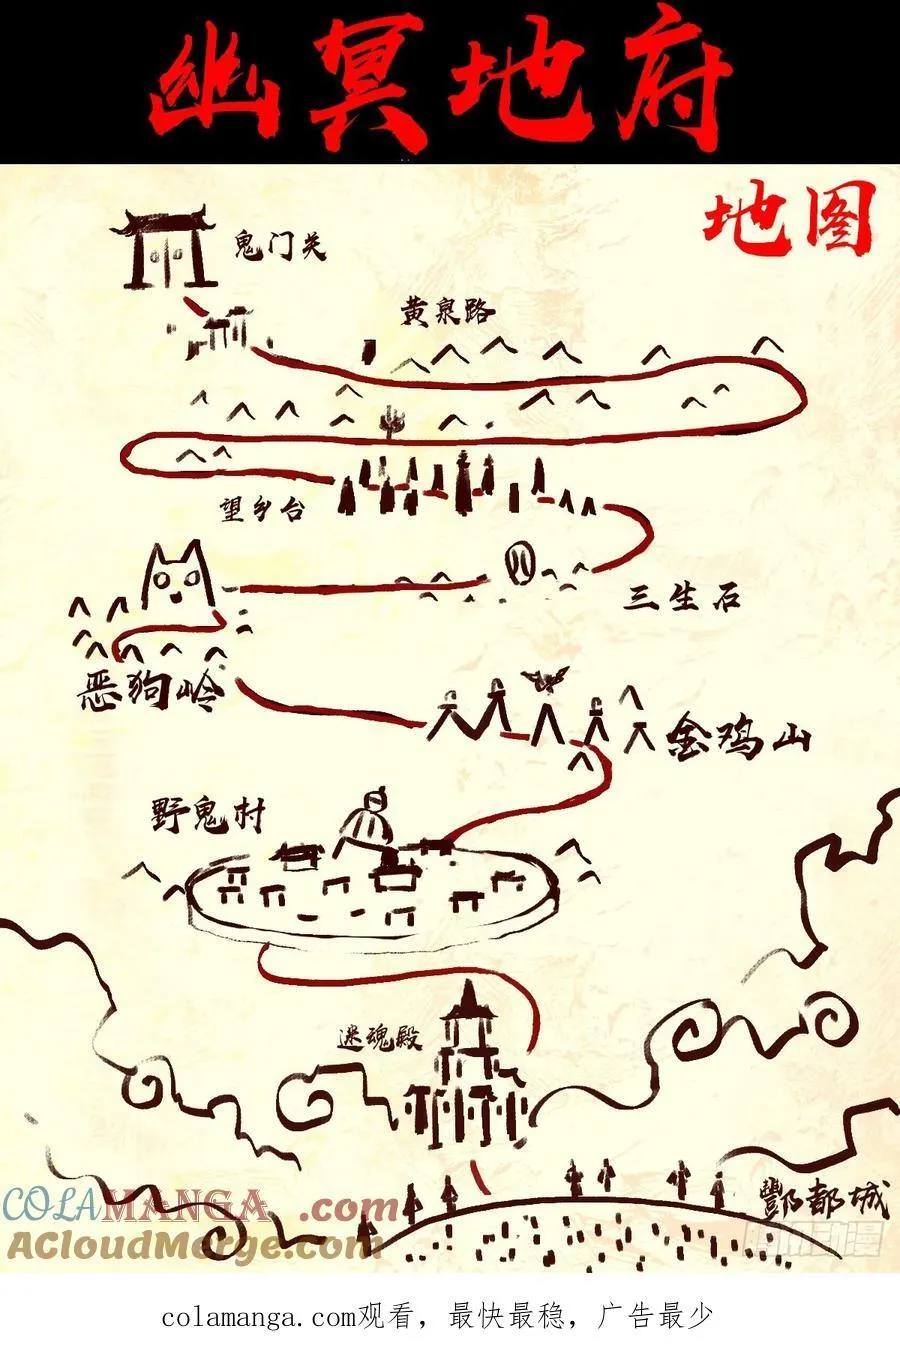 幽冥地府
地图
鬼门关
黄泉路
望乡台
三生石
恶狗岭
金鸡山
野鬼村
迷魂殿
酆都城
COLAMANGA.com
ACloudMerge.com
colamanga.com观看，最快最稳，广告最少